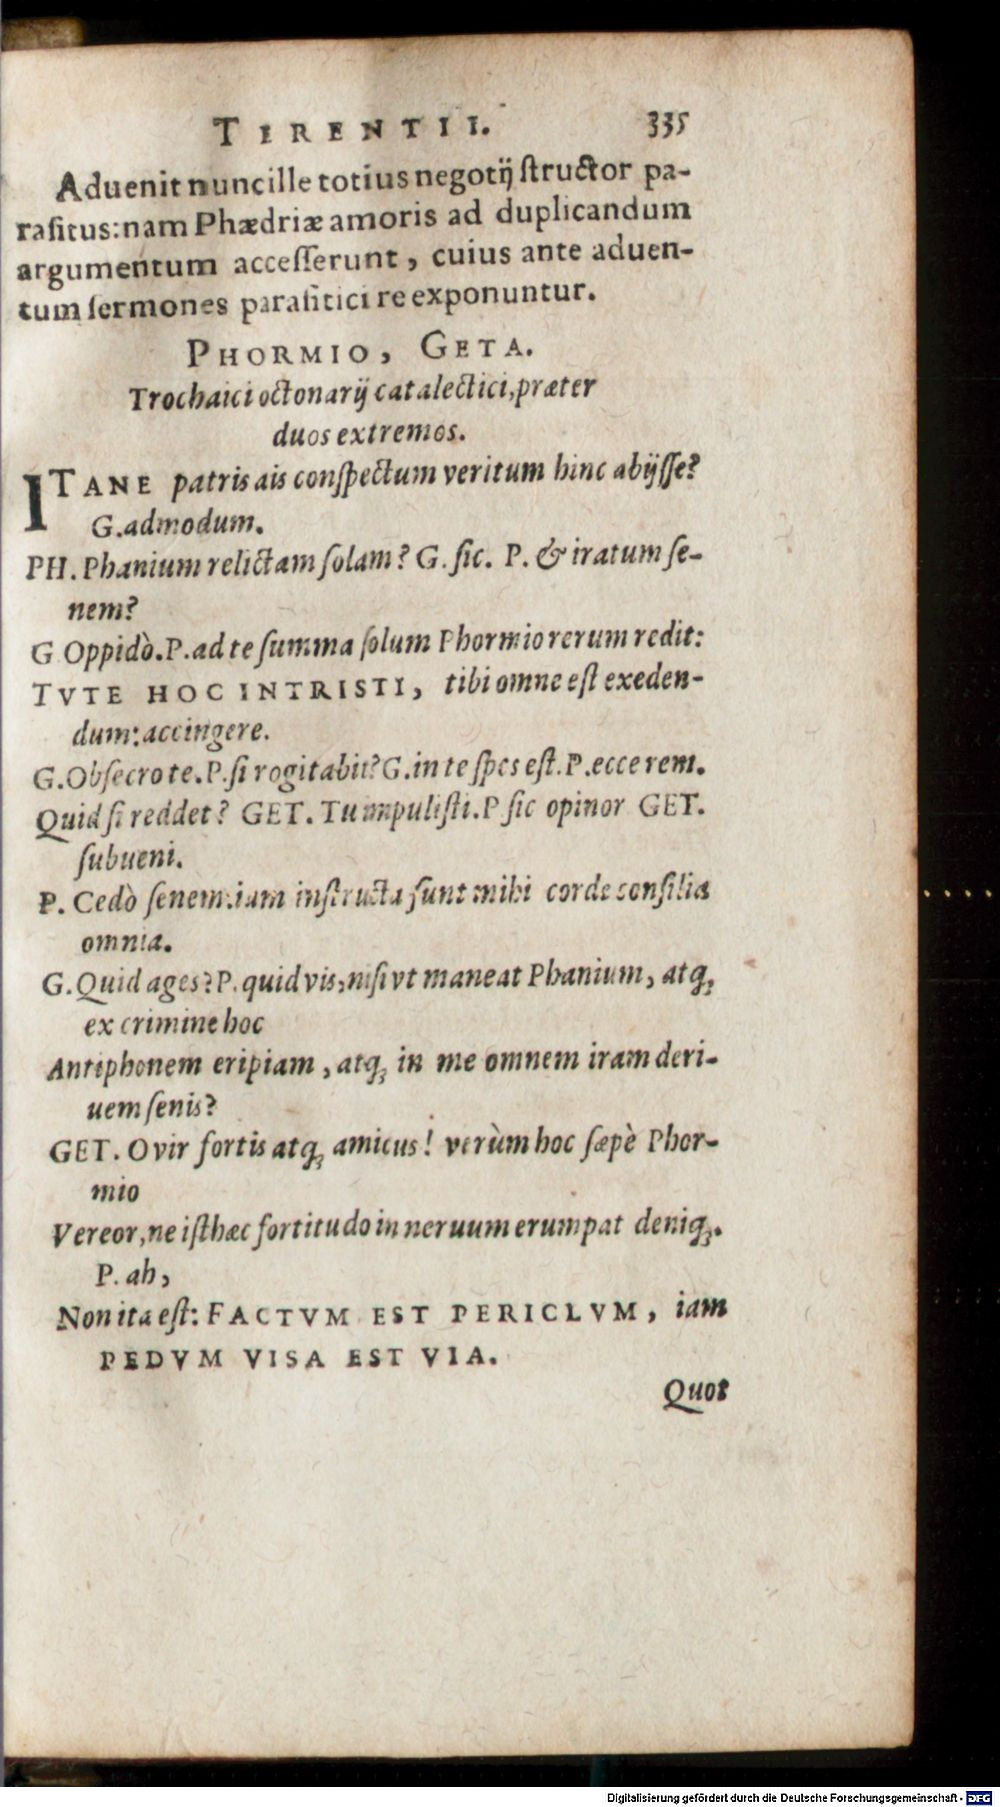 TERENTII. 335
Aduenit nunc ille totius negotij ſtructor pa-
raſitus: nam Phædriæ amoris ad duplicandum
argumentum acceſſerunt, cuius ante aduen-
tum ſermones paraſitici re exponuntur.
PHORMIO, GETA.
Trochaici octonarij catalectici, præter
duos extremos.
ITANE patris ais conſpectum veritum hinc abijſſe?
G. admodum.
PH. Phanium relictam ſolam? G. ſic. P. & iratum ſe-
nem?
G Oppidò. P. ad te ſumma ſolum Phormio rerum redit:
TVTE HOC INTRISTI, tibi omne eſt exeden-
dum: accingere.
G. Obſecro te. P. ſi rogitabit? G. in te ſpes eſt. P. ecce rem.
Quid ſi reddet? GET. Tu impuliſti. P ſic opinor GET.
ſubueni.
P. Cedò ſenem: iam inſtructa ſunt mihi corde conſilia
omnia.
G. Quid ages? P. quid vis, niſi vt maneat Phanium, atq;
ex crimine hoc
Antiphonem eripiam, atq; in me omnem iram deri-
uem ſenis?
GET. O vir fortis atq; amicus! verùm hoc ſæpè Phor-
mio
Vereor, ne iſthæc fortitudo in neruum erumpat deniq;.
P. ah,
Non ita eſt: FACTVM EST PERICLVM, iam
PEDVM VISA EST VIA.
Quot
Digitalisierung gefördert durch die Deutsche Forschungsgemeinschaft - DFG